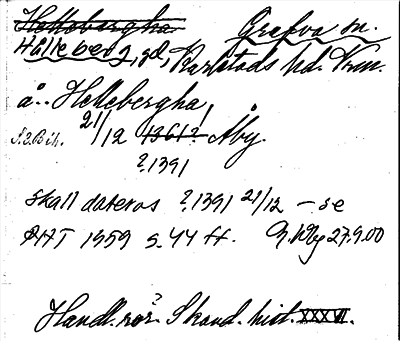 Hellebergha Grafva sn.
Hålleberg, gd, Karlstads hd. Vrm.
å.. Hellebergha
S.2. Bih. 21/12 1361? Åby.
?1391
skall dateras ?1391 21/12 – se
PHT 1959 s. 44 ff. 27.9.00
Handl. rör. Skand. hist. XXXVI.